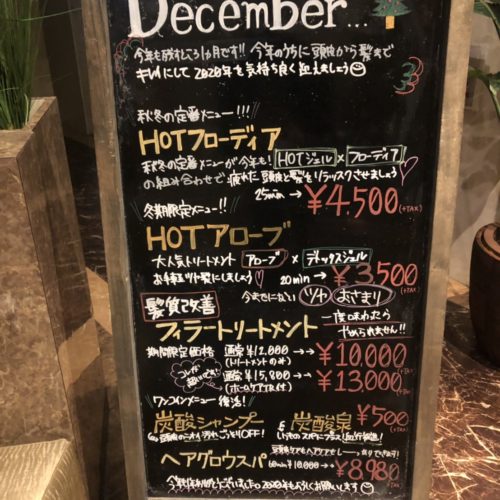 December...
今年も残すところ1ヵ月です!! 今年のうちに頭皮から髪まで
キレイにして2020年を気持ち良く迎えましょう
秋冬の定番メニュー!!!
HOTフローディア
秋冬の定番メニューが今年も! HOTジェル×フローディア
の組み合わせで疲れた頭皮と髪をリラックスさせましょう
25min → ¥4,500 (+TAX)
冬期限定メニュー!!
HOTアローブ
大人気トリートメント アローブ × デトックスジェル
お手軽ツヤ髪にしましょう♡ 20min → ¥3,500 (+TAX)
髪質改善 今までにない ツヤ おさまり
フィラートリートメント 一度味わたら
やめられません!!
期間限定価格 通常¥12,000 →→ ¥10,000
(トリートメントのみ) (+TAX)
通常¥15,800 →→ ¥13,000
(ホームケア付)
ワンコインメニュー復活!
炭酸シャンプー & 炭酸泉 ¥500 (+TAX)
ヘアグロウスパ
60min ¥10,000 →→ ¥8,980
今年も
2020年もよろしくお願いします